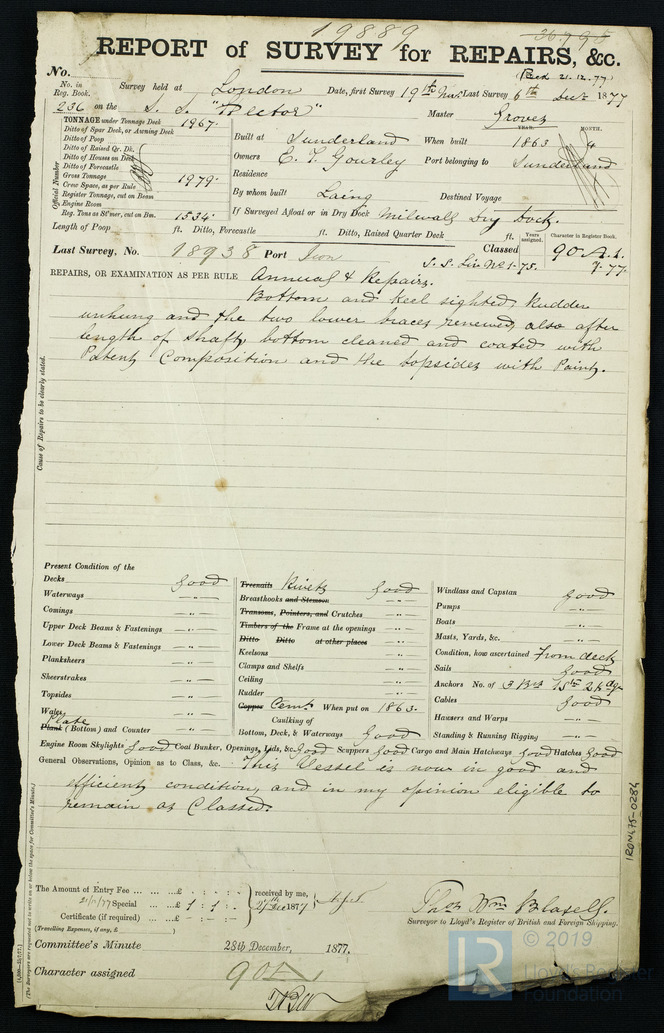 19889
REPORT of SURVEY for REPAIRS, &c.
(Recd 21.12.77)
No.
No. in Reg. Book. Survey held at London Date, first Survey 19th Nov. Last Survey 6th Dec 1877
236 on the S. S. "Hector" Master Groves
TONNAGE under Tonnage Deck 1967.
Ditto of Spar Deck, or Awning Deck
Ditto of Poop
Ditto of Raised Qr. Dk.
Ditto of Houses on Deck
Ditto of Forecastle
Gross Tonnage 1979.
Crew Space, as per Rule
Register Tonnage, cut on Beam
Engine Room
Reg. Tons as St'mer, cut on Bm. 1534.
Official Number
YEAR. MONTH.
Built at Sunderland When built 1863 4
Owners E. T. Gourley Port belonging to Sunderland
Residence
By whom built Laing Destined Voyage
If Surveyed Afloat or in Dry Dock Milwall Dry Dock.
Length of Poop ft. Ditto, Forecastle ft. Ditto, Raised Quarter Deck ft. Years assigned. Character in Register Book.
Last Survey, No. 18938 Port Iron Classed 90 A.1.
S. S. Liv. No 1-75. 7.77.
REPAIRS, OR EXAMINATION AS PER RULE Annual & Repairs.
Bottom and keel sighted, Rudder
unhung and the two lower braces renewed, also after
length of shaft, bottom cleaned and coated with
Patent Composition and the topsides with Paint.
Cause of Repairs to be clearly stated.
Present Condition of the
Decks good
Waterways — " —
Comings — " —
Upper Deck Beams & Fastenings — " —
Lower Deck Beams & Fastenings — " —
Planksheers — " —
Sheerstrakes — " —
Topsides — " —
Wales — " —
Plate
Plank (Bottom) and Counter — " —
Treenails Rivets good
Breasthooks and Stemson — " —
Transoms, Pointers, and Crutches — " —
Timbers of the Frame at the openings — " —
Ditto Ditto at other places — " —
Keelsons — " —
Clamps and Shelfs — " —
Ceiling — " —
Rudder — " —
Copper Cemt When put on 1863.
Caulking of
Bottom, Deck, & Waterways good
Windlass and Capstan good
Pumps — " —
Boats — " —
Masts, Yards, &c. — " —
Condition, how ascertained From deck
Sails good
Anchors No. of 3 Brs 1 St 2 Kdgs
Cables good
Hawsers and Warps — " —
Standing & Running Rigging — " —
Engine Room Skylights good Coal Bunker, Openings, Lids, &c. good Scuppers good Cargo and Main Hatchways good Hatches good
General Observations, Opinion as to Class, &c. This Vessel is now in good and
efficient condition, and in my opinion eligible to
remain as Classed.
IRON475-0284
The Amount of Entry Fee £ : : received by me,
Special £ 1 : 1 : -
Certificate (if required) £ - : - :
(Travelling Expenses, if any, £ )
Thos Wm Blaxell.
Surveyor to Lloyd's Register of British and Foreign Shipping.
Committee's Minute 28th December, 1877.
Character assigned 90A
LR © 2019
Lloyd's Register
Foundation